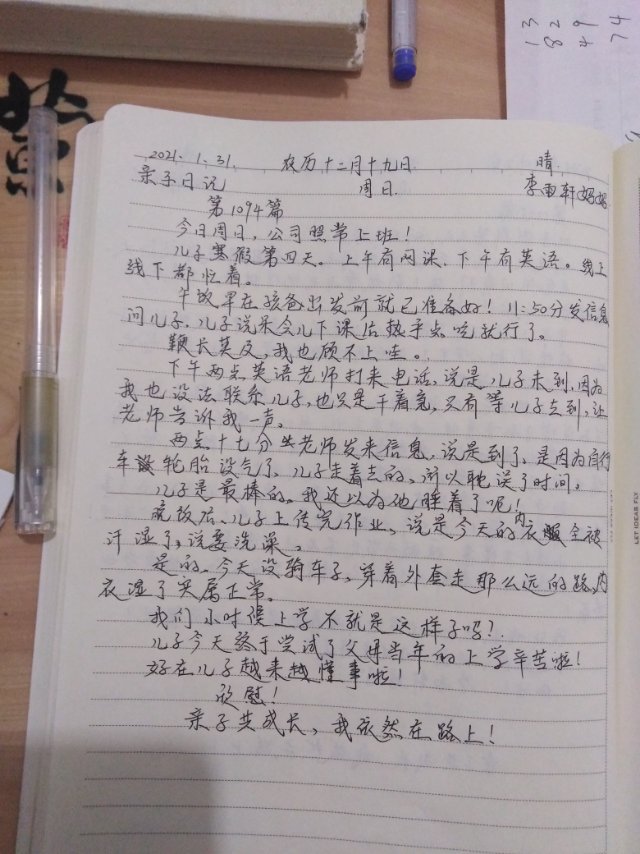 3 2 9 4
1 8 4 7
2021.1.31. 农历十二月十九日 晴
亲子日记 周日. 李雨轩妈妈
第1094篇
今日周日，公司照常上班！
儿子寒假第四天。上午有网课．下午有英语。线上
线下都忙着。
午饭早在孩爸出发前就已准备好！11:50分发信息
问儿子．儿子说呆会儿下课后热乎点吃就行了。
鞭长莫及，我也顾不上哇。
下午两点英语老师打来电话，说是儿子未到．因为
我也没法联系儿子，也只是干着急，只有等儿子去到，让
老师告诉我一声。
两点十七分老师发来信息，说是到了，是因为自行
车轮胎没气了．儿子走着去的，所以耽误了时间。
儿子是最棒的．我还以为他睡着了呢！
晚饭后、儿子上传完作业、说是今天的内衣服全被
汗湿了，说要洗澡。
是的。今天没骑车子，穿着外套走那么远的路，内
衣湿了实属正常。
我们小时候上学不就是这样子吗？
儿子今天终于尝试了父母当年的上学辛苦啦！
好在儿子越来越懂事啦！
欣慰！
亲子共成长，我依然在路上！
LET IDEAS FLY